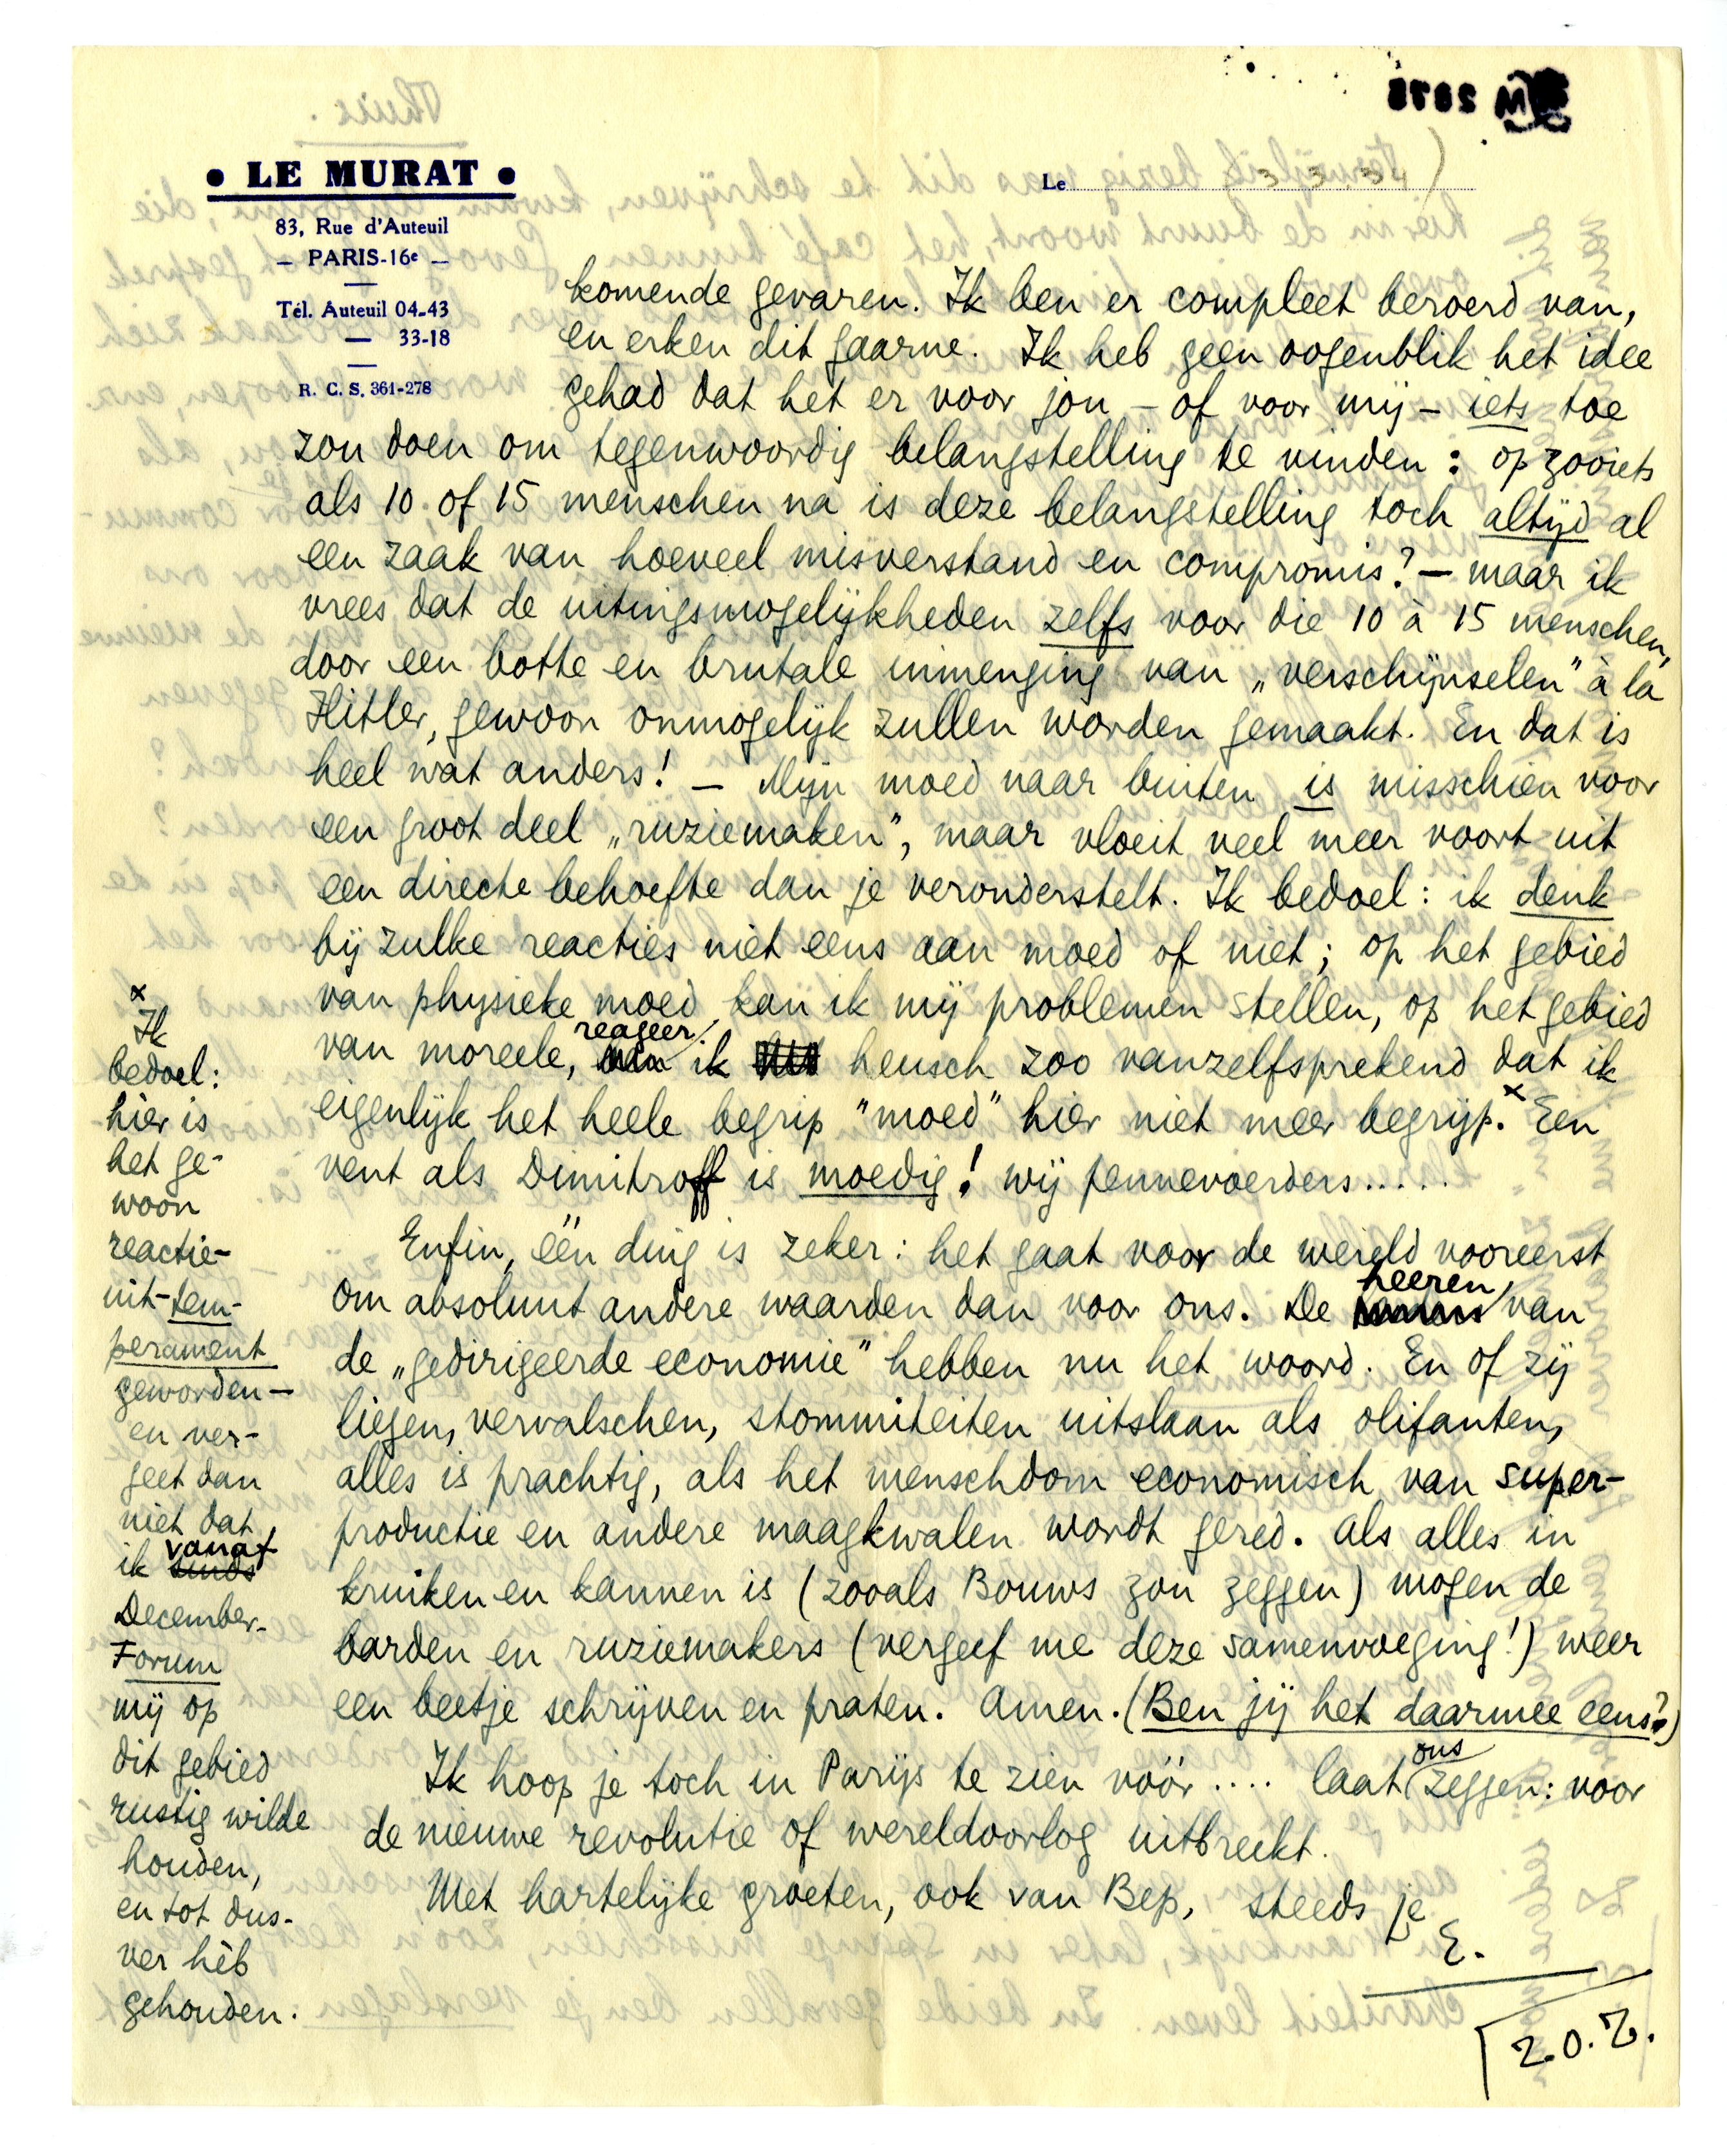 • LE MURAT •
83, Rue d'Auteuil
— PARIS-16e —
Tél. Auteuil 04-43
— 33-18
R. C. S. 361-278
Le
komende gevaren. Ik ben er compleet beroerd van,
en erken dit gaarne. Ik heb geen oogenblik het idee
gehad dat het er voor jou – of voor mij – iets toe
zou doen om tegenwoordig belangstelling te vinden: op zooiets
als 10 of 15 menschen na is deze belangstelling toch altijd al
een zaak van hoeveel misverstand en compromis? — maar ik
vrees dat de uitingsmogelijkheden zelfs voor die 10 à 15 menschen,
door een botte en brutale inmenging van „verschijnselen” à la
Hitler, gewoon onmogelijk zullen worden gemaakt. En dat is
heel wat anders! — Mijn moed naar buiten is misschien voor
een groot deel „ruziemaken”, maar vloeit veel meer voort uit
een directe behoefte dan je veronderstelt. Ik bedoel: ik denk
bij zulke reacties niet eens aan moed of niet; op het gebied
van physieke moed kan ik mij problemen stellen, op het gebied
van moreele, reageer ik heusch zoo vanzelfsprekend dat ik
eigenlijk het heele begrip "moed" hier niet meer begrijp.x Een
vent als Dimitroff is moedig! wij pennevoerders.....
Enfin, één ding is zeker: het gaat voor de wereld vooreerst
om absoluut andere waarden dan voor ons. De heeren van
de „gedirigeerde economie” hebben nu het woord. En of zij
liegen, vervalschen, stommiteiten uitslaan als olifanten,
alles is prachtig, als het menschdom economisch van super-
productie en andere maagkwalen wordt gered. Als alles in
kruiken en kannen is (zooals Bouws zou zeggen) mogen de
barden en ruziemakers (vergeef me deze samenvoeging!) weer
een beetje schrijven en praten. Amen. (Ben jij het daarmee eens?)
Ik hoop je toch in Parijs te zien vóór .... laat ons zeggen: voor
de nieuwe revolutie of wereldoorlog uitbreekt.
Met hartelijke groeten, ook van Bep, steeds je
E.
Z.O.Z.
x
Ik
bedoel:
hier is
het ge-
woon
reactie-
uit-tem-
perament
geworden —
en ver-
geet dan
niet dat
ik sinds vanaf
December-
Forum
mij op
dit gebied
rustig wilde
houden,
en tot dus-
ver hèb
gehouden.